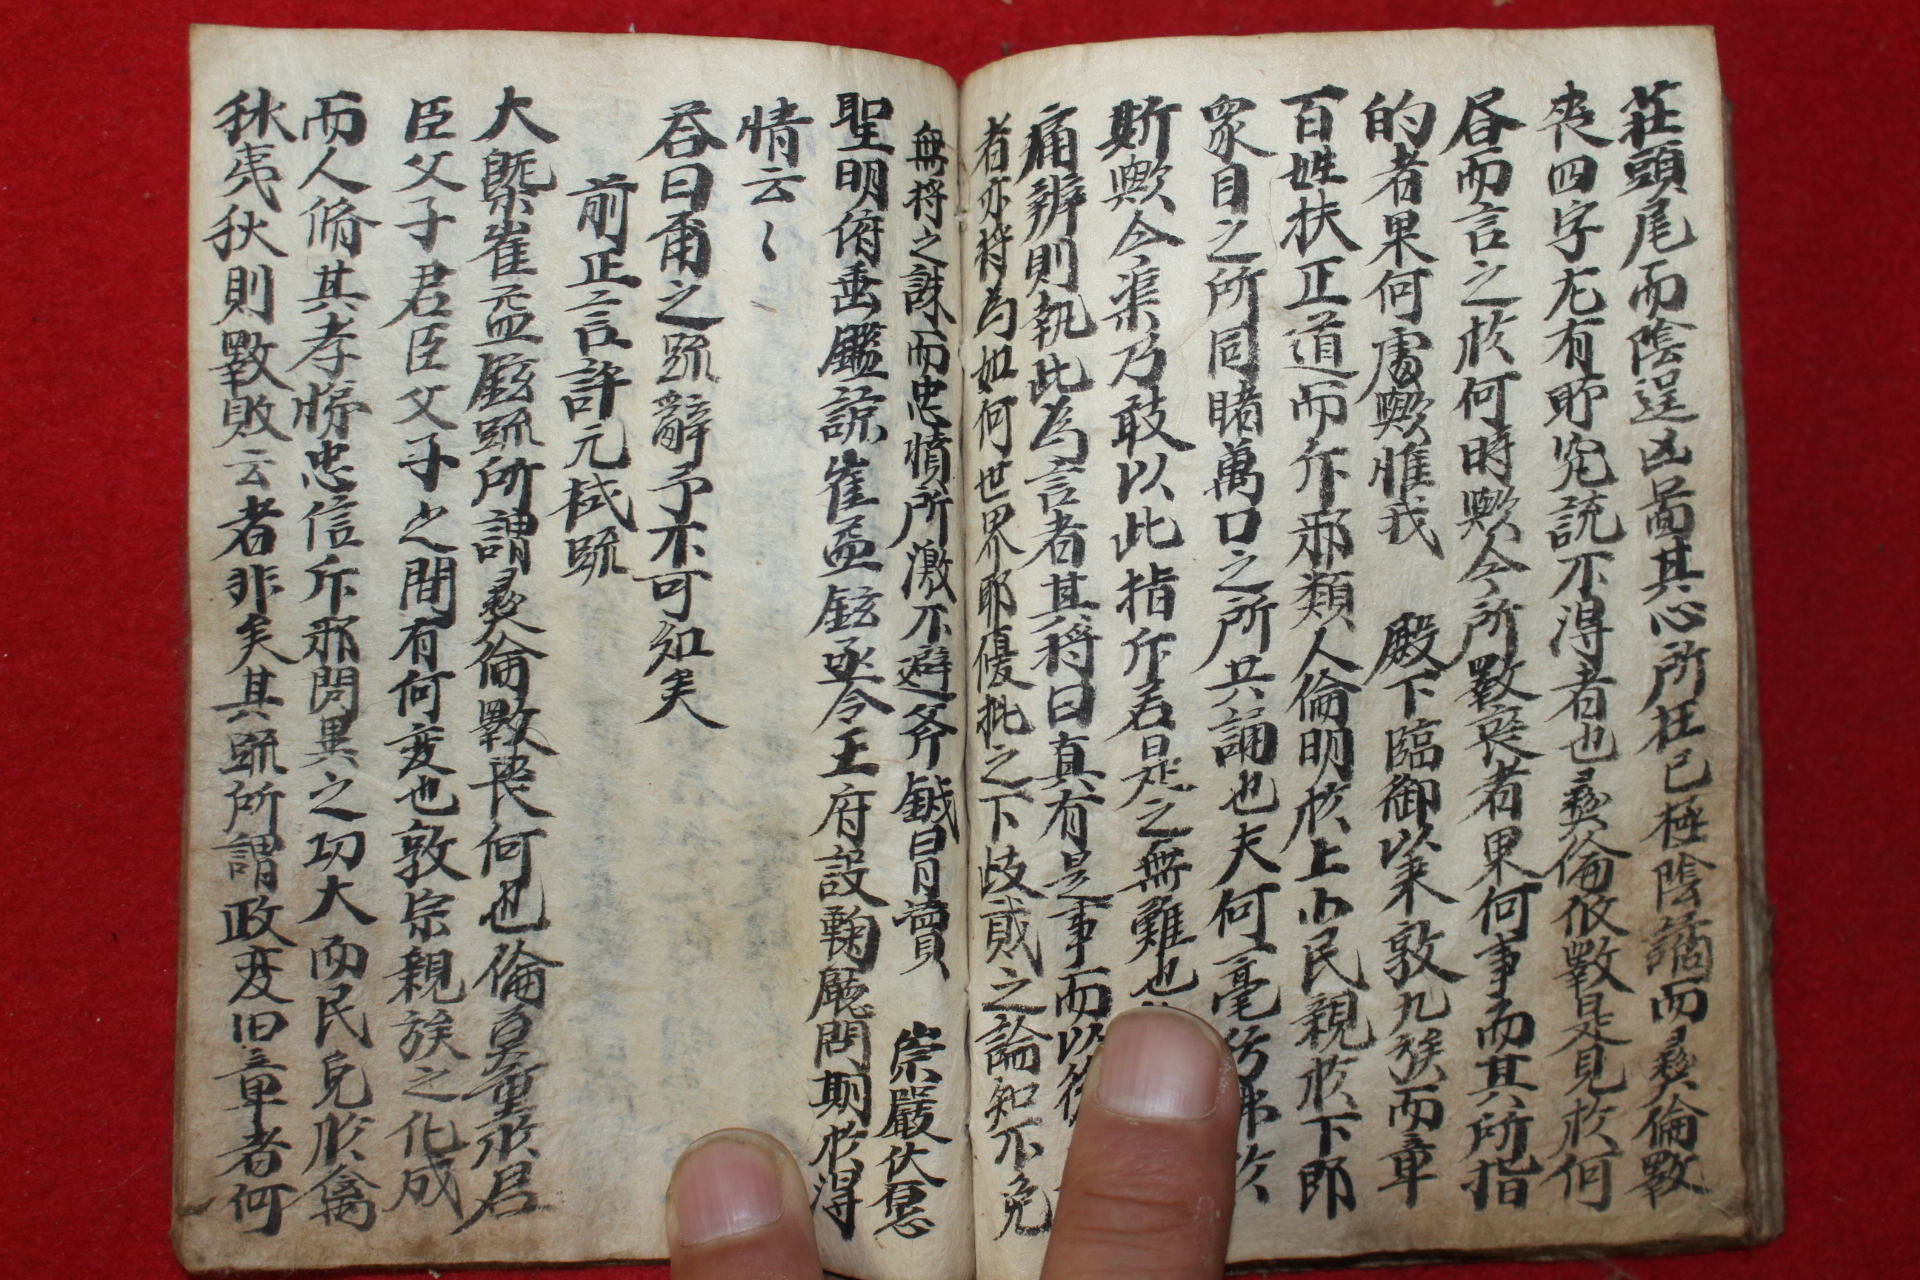 莊頭尾而陰逞凶啚其心所在已極陰譎而彛倫斁
喪四字尤有所究詰不得者也彛倫攸斁是見於何
昏而言之於何時歟今所斁喪者果何事而其所指
的者果何處歟惟我 殿下臨御以來敦九族而章
百姓扶正道而斥邪類人倫明於上小民親於下即
衆目之所同睹萬口之所共誦也夫何一毫彷彿於
斯歟今渠乃敢以此指斥若是之無難也
痛辨則執此為言者其將曰真有是事而以
者亦將為如何世界耶優批之下歧貳之論知不免
無將之誅而忠憤所激不避斧鉞冒昧 崇嚴伏愿
聖明俯垂鑑諒崔益鉉亟令王府設鞫廳問期於得
情云〻
答曰爾之疏辭予不可知矣
前正言許元栻疏
大槩崔益鉉疏所謂彛倫斁喪何也倫莫重於君
臣父子君臣父子之間有何変也敦宗親族之化成
而人脩其孝悌忠信斥邪闢異之功大而民免於禽
秋夷狄則斁敗云者非矣其疏所謂政変旧章者何